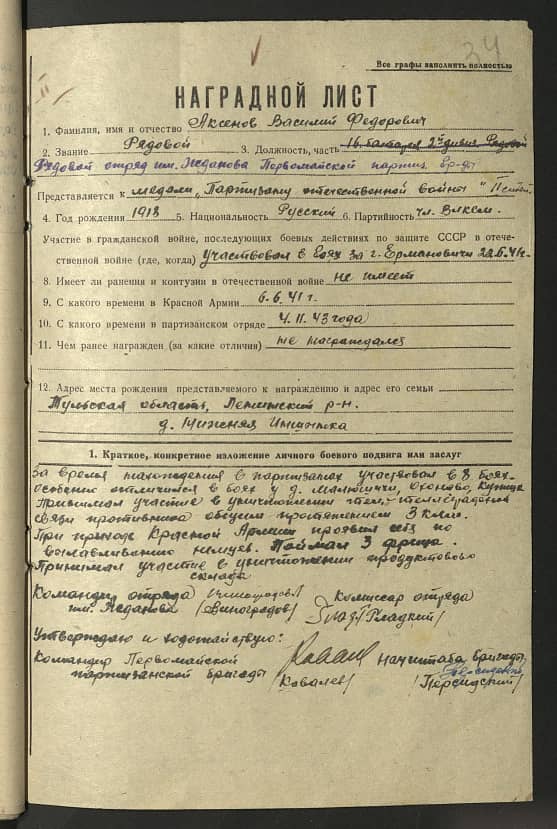 34
Все графы заполнить полностью
НАГРАДНОЙ ЛИСТ
1. Фамилия, имя и отчество Аксенов Василий Федорович
2. Звание Рядовой 3. Должность, часть 16 батарея 2й дивиз. Рядовой
Рядовой отряд им. Жданова Первомайской партиз. бр-ды
Представляется к медали „Партизану отечественной войны" II степ.
4. Год рождения 1918 5. Национальность Русский 6. Партийность чл. ВЛКСМ.
Участие в гражданской войне, последующих боевых действиях по защите СССР в отече-
ственной войне (где, когда) Участвовал в боях за г. Ермановичи 22.6.41г.
8. Имеет ли ранения и контузии в отечественной войне не имеет
9. С какого времени в Красной Армии 6.6.41 г.
10. С какого времени в партизанском отряде 4.11.43 года
11. Чем ранее награжден (за какие отличия) не награждался
12. Адрес места рождения представляемого к награждению и адрес его семьи
Тульская область, Ленинский р-н.
д. Нижняя
1. Краткое, конкретное изложение личного боевого подвига или заслуг
За время нахождения в партизанах участвовал в 8 боях.
Особенно отличился в боях у д. Малюшичи, Оконово, Купище
Принимал участие в уничтожении телег.-телеграфной
связи противника общим протяжением 3 клм.
При приходе Красной Армии проявил себя по
вылавливанию немцев. Поймал 3 фрица.
Принимал участие в уничтожении продуктового
склада
Командир отряда Комиссар отряда
им. Жданова /Виноградов/ /Гладкий/
Утверждаю и ходотайствую:
Командир Первомайской Начштаба бригады
партизанской бригады /Ковалев/ /Персидский/